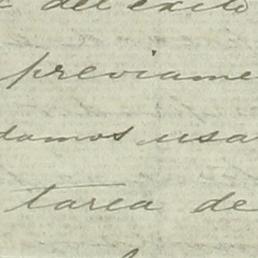 del exito
previame
damos usa
tarea de